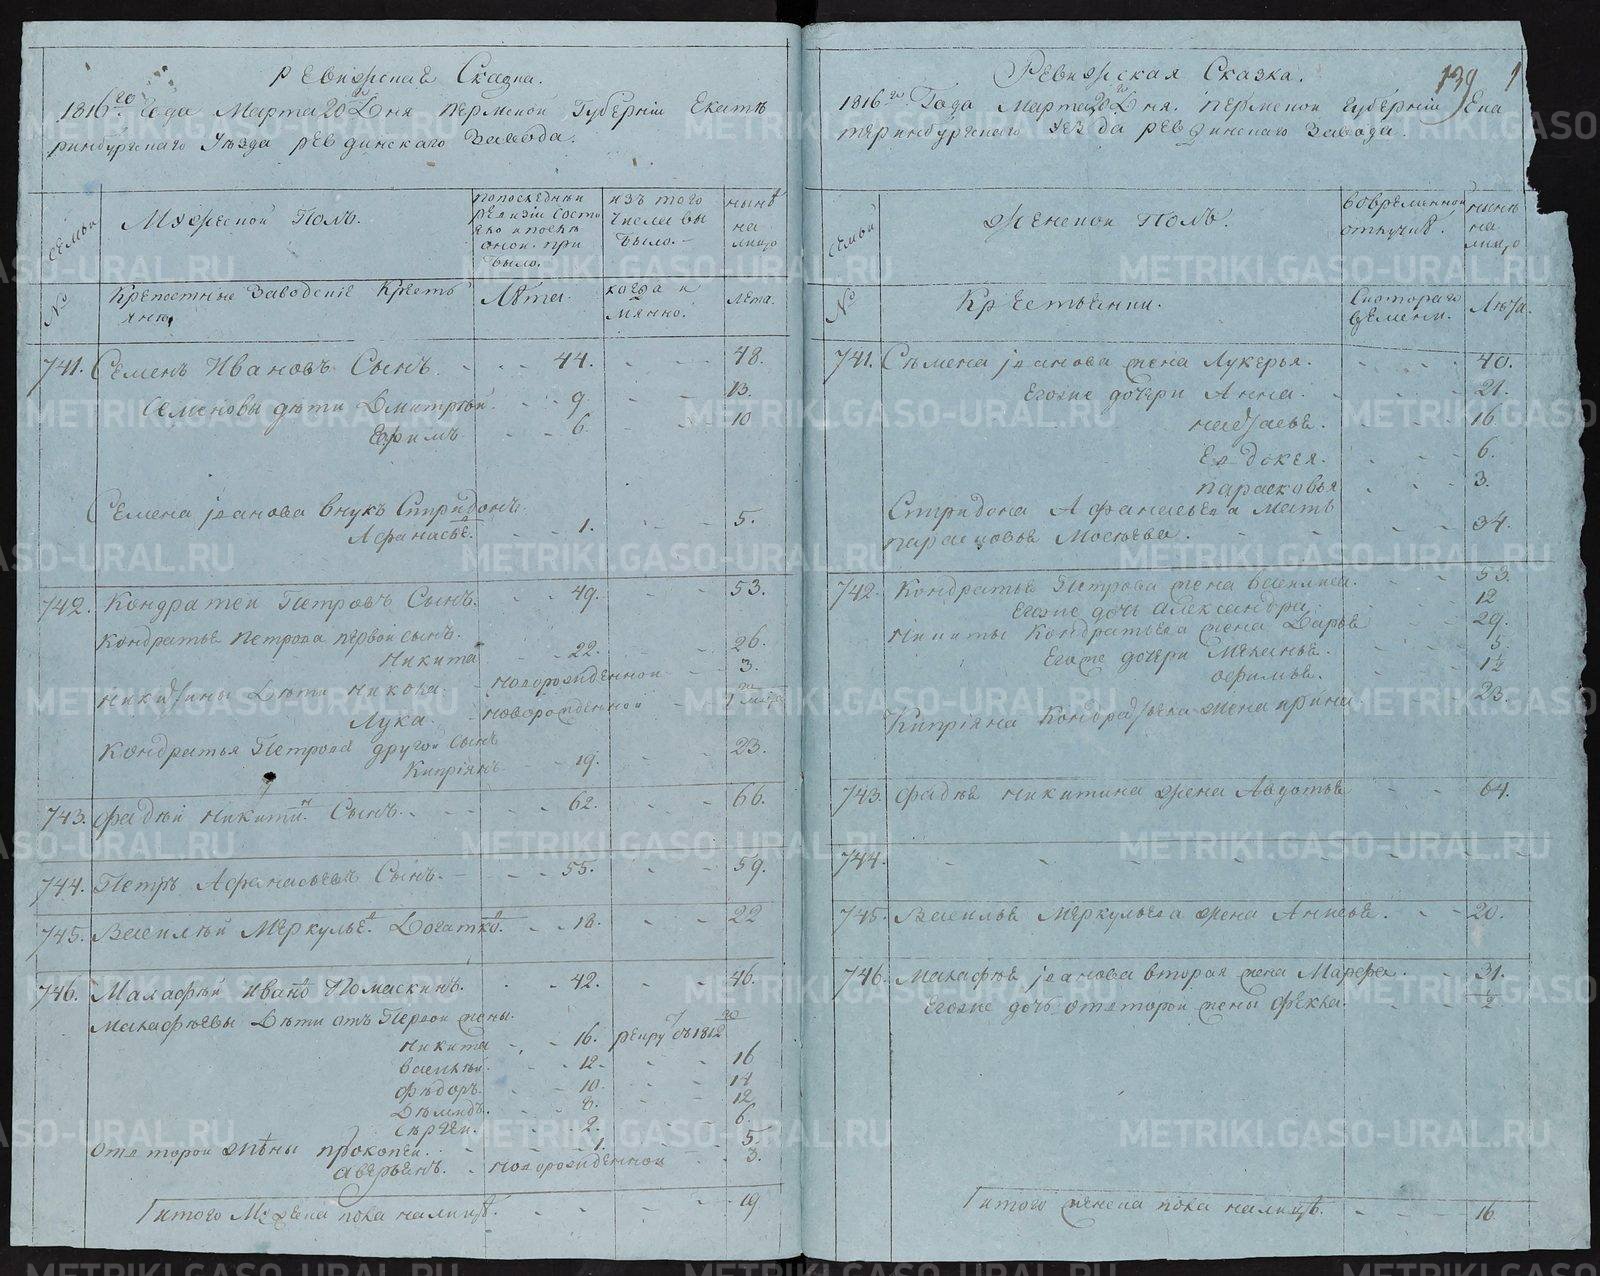 Ревижская Сказка.
1816го Года Марта 20 Дня Пермской Губерніи Екате
ринбургскаго Уезда ревдинскаго Завода.
семьи
Мужеской Полъ.
попоследней
ревизіи состо
яло и после
оной при
было.
изъ того
числа вы
было.
ныне
на
лицо
№
Крепостные Заводские Кресть
яне
Лета.
когда и
мянно.
Лета.
741. Семенъ Ивановъ Сынъ. 44. 48.
Семеновы дети Дмитрей 9. 13.
Ефимъ 6. 10
Семена Іванова внукъ Спиридонъ
Афанасье.в 1. 5.
742. Кондратей Петровъ Сынъ. 49. 53.
Кондратья Петрова первой сынъ.
Никита 22. 26.
Никитины Дети Никола новорожденной 3.
Лука новорожденной
Кондратья Петрова другой Сынъ
Кипріянъ 19. 23.
743. Фадей Никитин. Сынъ. 62. 66.
744. Петръ Афанасьевъ Сынъ. 55. 59.
745. Василей Меркулье.в Догатко. 18. 22
746. Малафей Ивано Помаскинъ. 42. 46.
Малафеевы Дети отъ Первой жены.
Никита 16. рекрутъ 1812го
Василей 12. 16
Федоръ 10. 14
Демидъ. 8. 12
Сергеи. 2. 6.
Отвторой жены Прокопей 1. 5.
Аверьянъ. новорожденной 3.
Итого Мужеска пола налицо. 19
Ревижская Сказка.
139
1816го Года Марта 20 Дня. Пермской Губерніи Ека
теринбургскаго Уезда ревдинскаго Завода.
семьи
Женской Полъ.
вовременной
отлучке.
ныне
на
лицо
№
Крестьянки.
Скотораго
времени.
Лета.
741. Семена Іванова жена Лукерья. 40.
Егоже дочери Анна. 21.
Настасья. 16
Евдокея. 6.
парасковья 3.
Спиридона Афанасьева мать
парасковья Мосеева. 34.
742. Кондратья Петрова жена Василиса. 53.
Егоже дочь Александра. 12
Никиты Кондратьева жена Дарья 29.
Егоже дочери Меланья. 5.
Офимья. 1½
Кипріяна Кондратьева жена ирина. 23.
743. Фадея Никитина жена Авдотья 64.
744.
745. Василья Меркульева жена Анисья. 20.
746. Малафея Іванова вторая жена Марфа. 31.
Егоже дочь отвторой жены Фекла. ½
Итого женска пола налицо. 16
METRIKI.GASO-URAL.RU